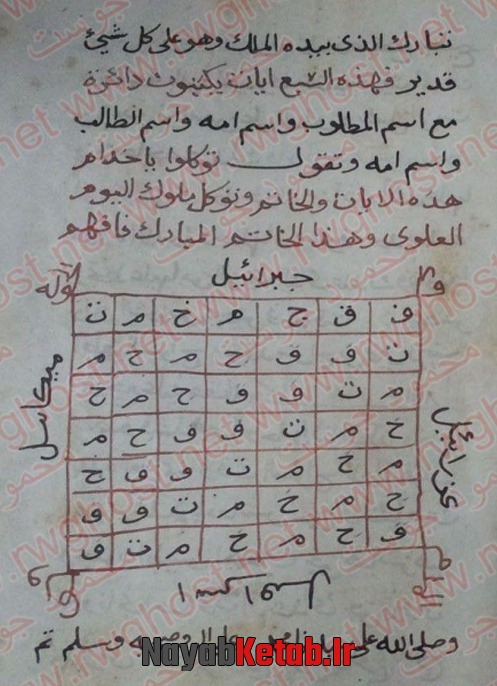 تبارك الذى بيده الملك وهو على كل شيئ
قدير فهذه السبع ايات يكتبون دائرة
مع اسم المطلوب واسم امه واسم الطالب
واسم امه وتقول توكلوا ياخدام
هذه الايات والخاتم وتوكل ملوك اليوم
العلوى وهذا الخاتم المبارك فافهم
جبرائيل
ف ق ج م خ م ت
ت ف ف ح م ح م
م ت ف ف ح م ح
ح م ت ف ف ح م
م ح م ت ف ف ح
ح م ح م ت ف ف
ف ح م ح م ت ف
ميكائيل
عزرائيل
وصلى الله على وصحبه وسلم تم
NayabKetab.Ir
www.rwghost.net